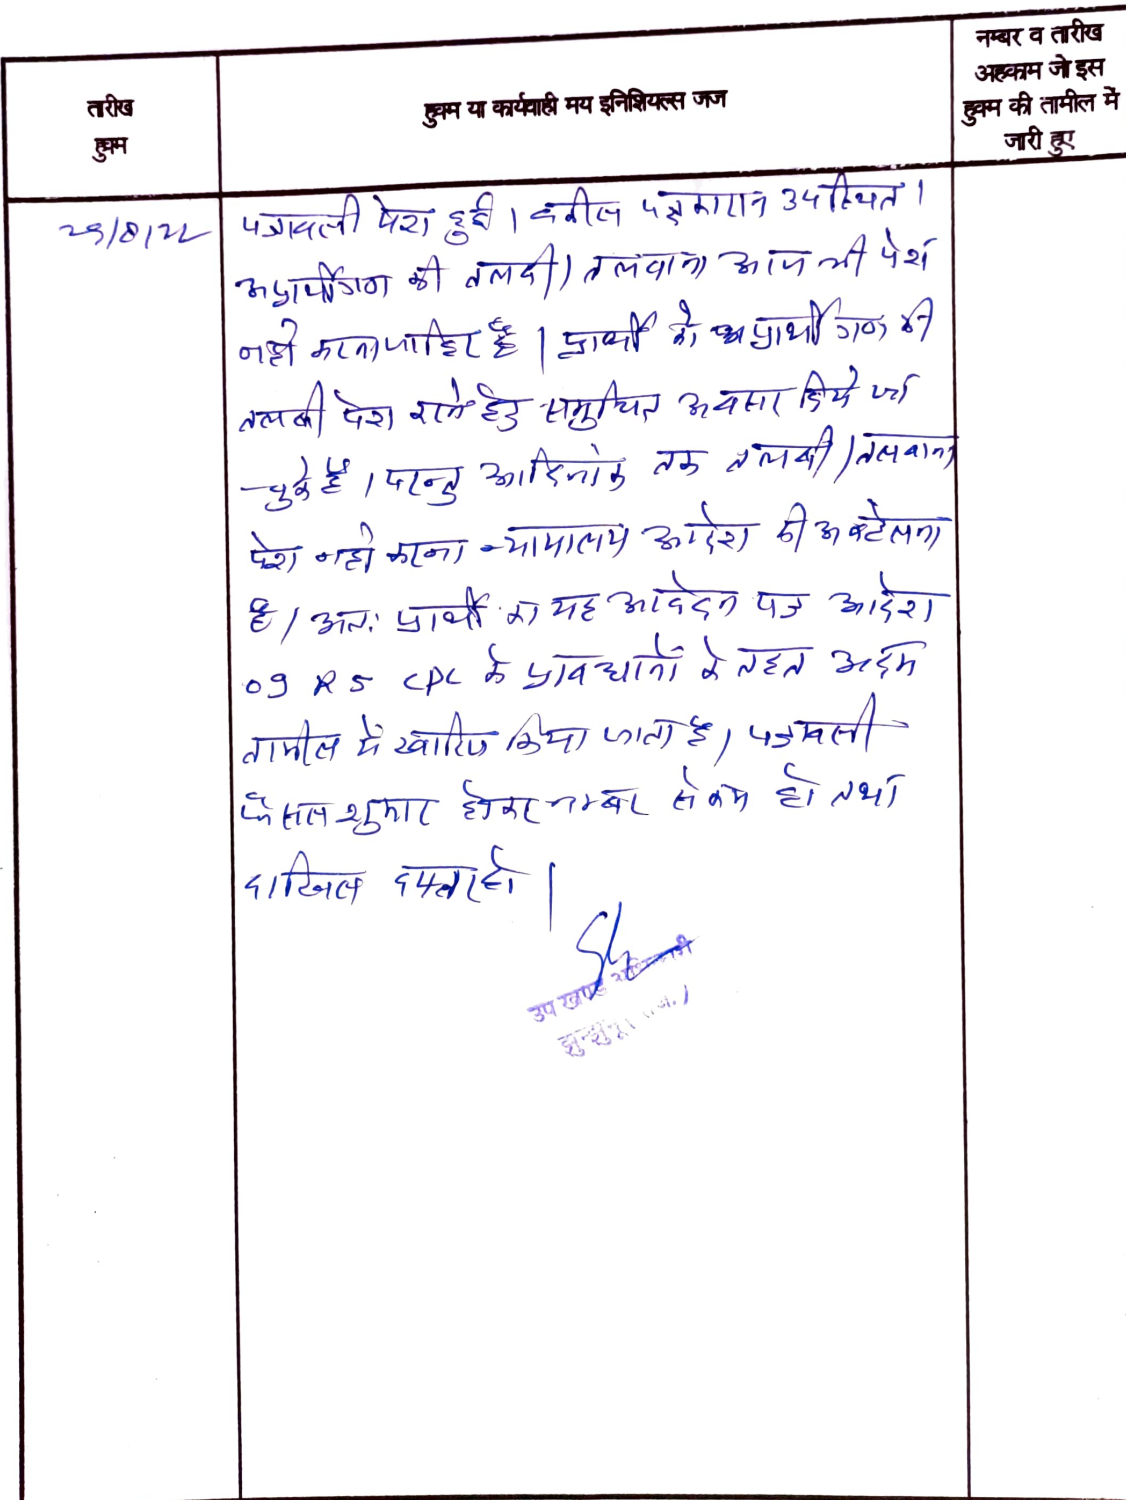 तारीख
हुक्म
हुक्म या कार्यवाही मय इनिशियल्स जज
नम्बर व तारीख
अहकाम जो इस
हुक्म की तामील में
जारी हुए
29/8/22
पत्रावली पेश हुई। वकील पक्षकारान उपस्थित।
अप्रार्थीगण की तलबी/तलवाना आज भी पेश
नही करना जाहिर है। प्रार्थी को अप्रार्थीगण की
तलबी पेश करने हेतु समुचित अवसर दिये जा
चुके है। परन्तु आदिनांक तक तलबी/तलवाना
पेश नही करना न्यायालय आदेश की अवहेलना
है। अतः प्रार्थी का यह आवेदन पत्र आदेश
09 R 5 CPC के प्रावधानों के तहत अदम
तामील में खारिज किया जाता है। पत्रावली
फैसल शुमार होकर नम्बर से कम हो तथा
दाखिल दफ्तर हो।
उप खण्ड अधिकारी
झुन्झुनू (राज.)